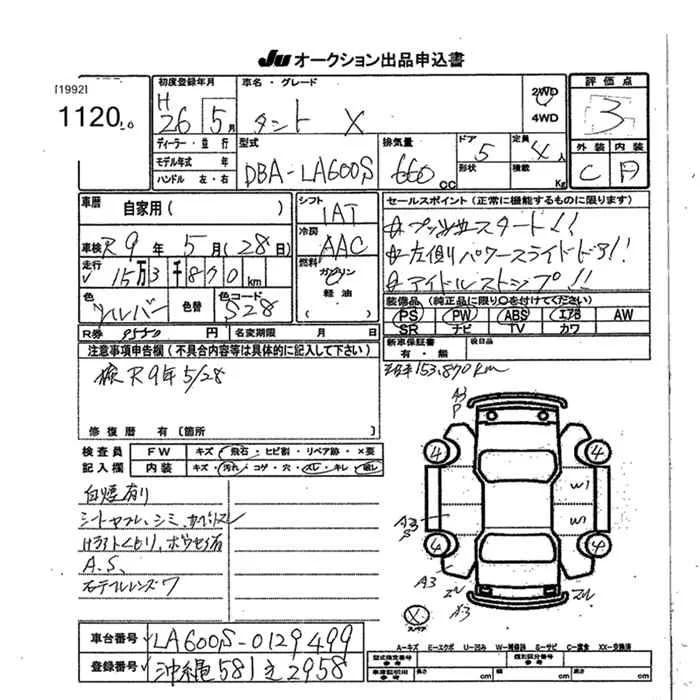 JU オークション出品申込書
[1992]
1120
初度登録年月
H
26 5月
車名・グレード
タント X
2WD
4WD
評価点
3
外装 内装
C A
ディーラー・並行
モデル年式 年
ハンドル 左・右
型式
DBA-LA600S
排気量
660 CC
ドア
5
形状
定員
4人
積載
Kg
車歴
自家用( )
シフト
IAT
冷房
AAC
燃料
ガソリン
軽油
車検 R9年5月(28日)
走行 15万3千870km
色
シルバー
色替
色コード
S28
R券 9550円
名変期限 月 日
セールスポイント(正常に機能するものに限ります)
☆プッシュスタート!!
☆左側パワースライドドア!!
☆アイドルストップ!!
装備品(純正品に限り○を付けてください)
PS PW ABS エアB AW
SR ナビ TV カワ
新車保証書
有・無
後日品
注意事項申告欄(不具合内容等は具体的に記入して下さい)
検R9年5/28
修復歴 有 〔箇所 〕
153,870km
検査員
記入欄
FW キズ・飛石・ヒビ割・リペア跡・×要
内装 キズ・汚れ・コゲ・穴・スレ・キレ・破レ
白煙有り
A.S.
A3
P
4 4
W1
W1
A3
S
4 4
A3
スレ
スレ
A3
×
スペア
車台番号 LA600S-0129499
登録番号 沖縄581 2958
A-キズ E-エクボ U-凹み W-補修跡 S-サビ C-腐食 XX-交換済
型式指定番号
参考
類別区分番号
参考
長さ cm
幅 cm
高さ cm